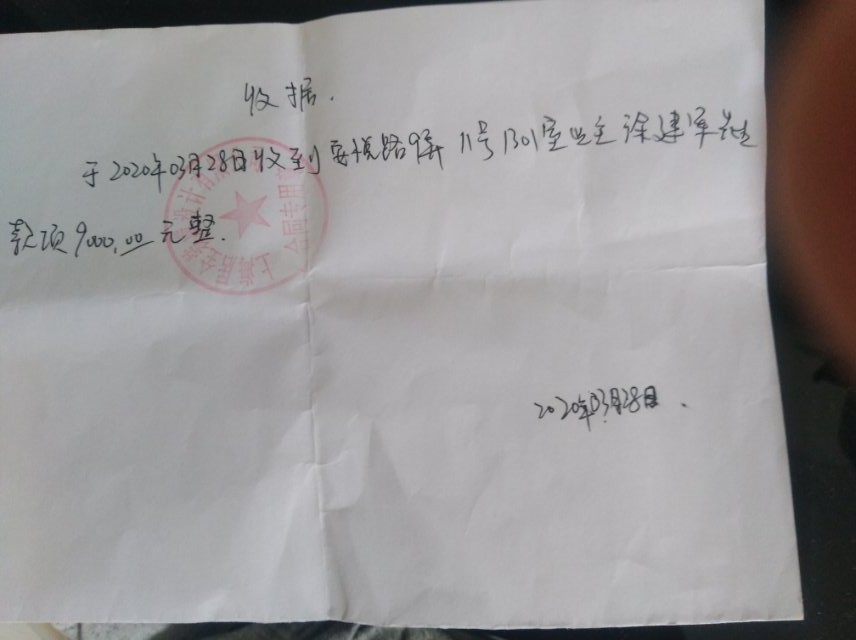 收据.
于2020年03月28日收到 路9弄 11号1301室业主涂建军先生
款项9000.00元整.
合同专用章
2020年03月28日.